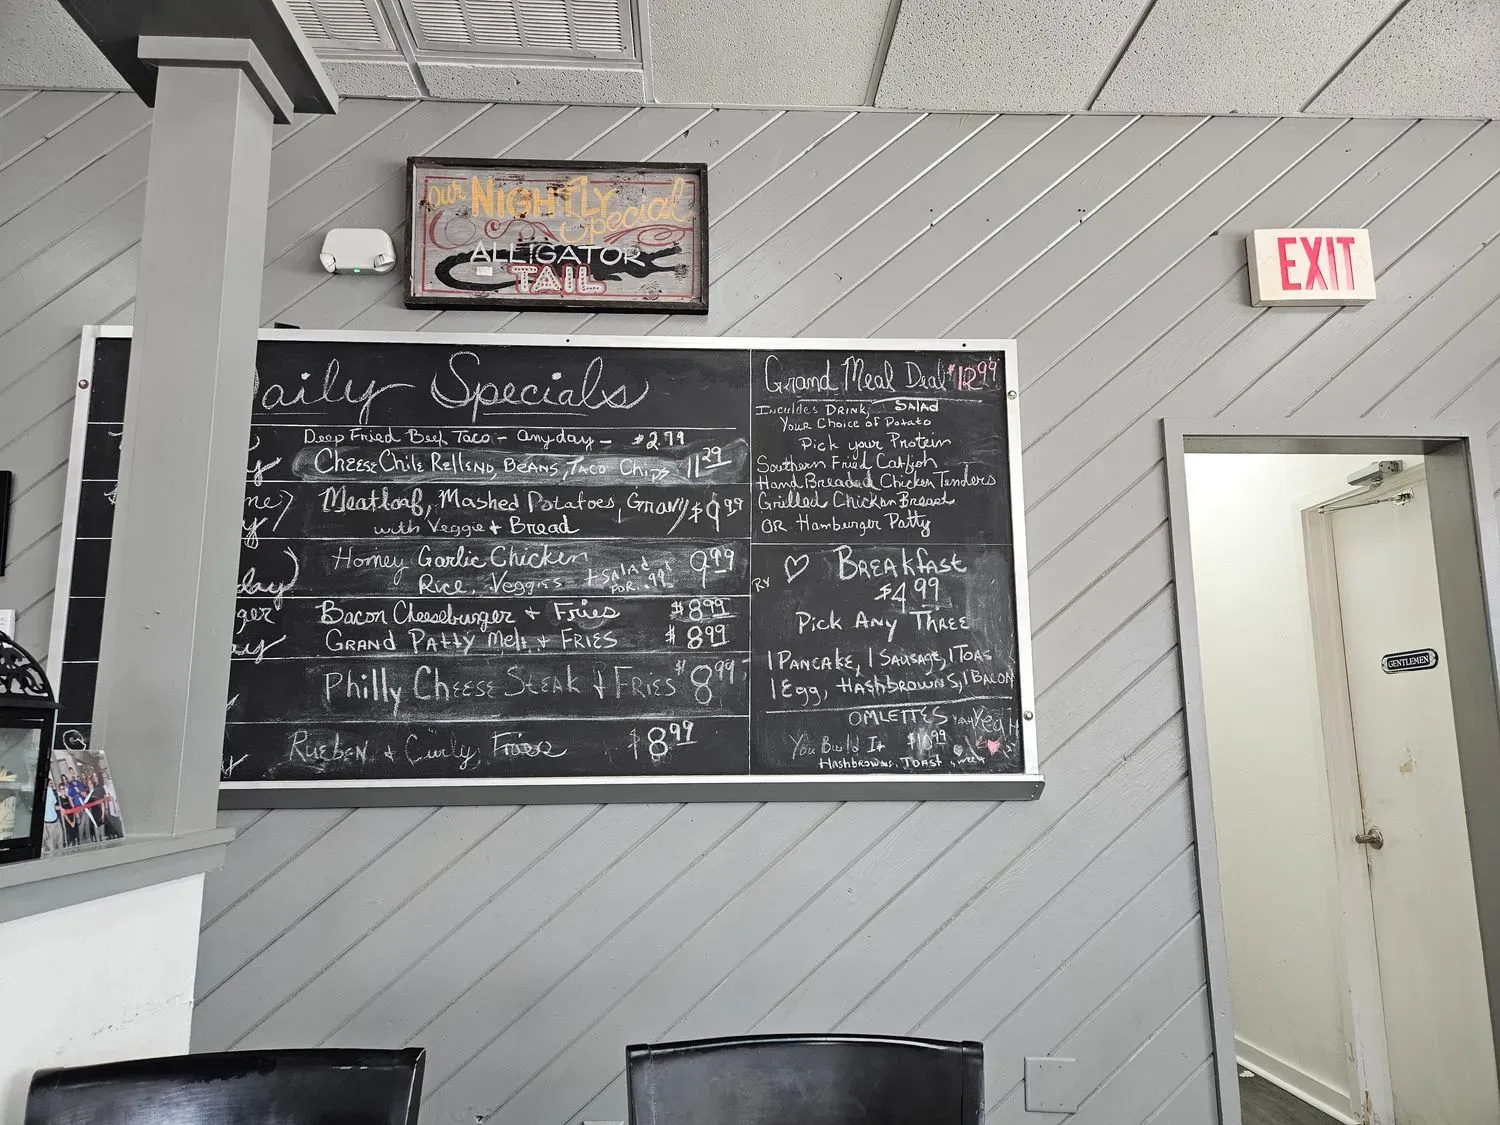 Our NIGHTLY Special
ALLIGATOR
TAIL
EXIT
GENTLEMEN
aily Specials
Deep Fried Beef Taco - anyday - $2.79
Cheese Chile Rellend, Beans, Taco Chips 11 29
Meatloaf, Mashed Potatoes, Gravy $9.99
with Veggie + Bread
Honey Garlic Chicken 9 99
Rice, Veggies + Salad FOR .99¢
day)
ger
Bacon Cheeseburger + Fries $8 99
ay
GRAND Patty Melt + FRIES $8 99
Philly Cheese Steak + Fries $8 99
Rueben + Curly Fries $8 99
Grand Meal Deal $12 99
Inculdes DRINK, SALAD
Your Choice of Potato
Pick your Protein
Southern Fried Catfish
Hand Breaded Chicken Tenders
Grilled Chicken Breast
OR Hamburger Patty
Breakfast
RV
$4.99
Pick Any Three
1 Pancake, 1 Sausage, 1 Toas
1 Egg, Hashbrowns, 1 Bacon
OMLETTES Yeah
You Build It $10 99
Hashbrowns, TOAST